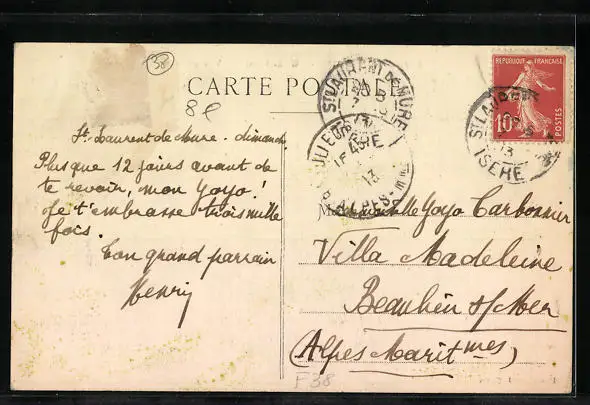 38
CARTE POSTALE
8f
St Laurent de Mure - dimanche
Plus que 12 jours avant de
te revoir, mon Yoyo!
Je t'embrasse trois mille
fois.
Ton grand parrain
Henry
ST LAURENT DE MURE
ISERE
13
ALPES-
REPUBLIQUE FRANÇAISE
10c
POSTES
ST LAURENT
ISERE
13
Mademoiselle Yoyo Carbonnier
Villa Madeleine
Beaulieu s/Mer
(Alpes Maritmes)
F38